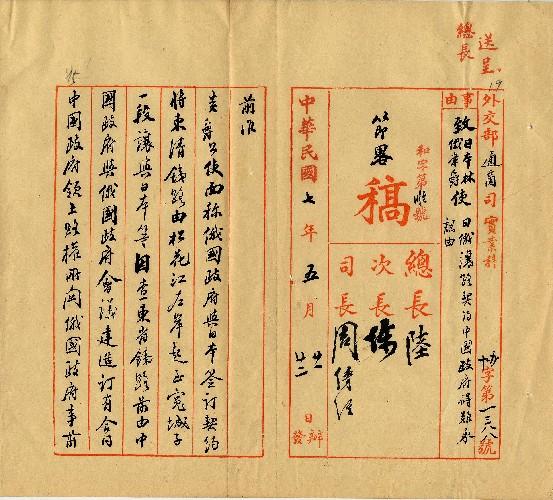 送呈
總長
19
外交部通商司實業科
事由
致日本林使
俄庫爵
日俄讓路契約中國政府碍難承認由
協字第一三八號
和字第 號
節畧
稿
總長陸
次長
司長周傳經
中華民國七年五月廿一日辦
廿二日發
15
前准
貴爵公使面稱俄國政府與日本簽訂契約
將東清鐵路由松花江左岸起至寬城子
一段讓與日本等因查東省鐵路前由中
國政府與俄國政府會議建造訂有合同
中國政府領土政權所關俄國政府事前